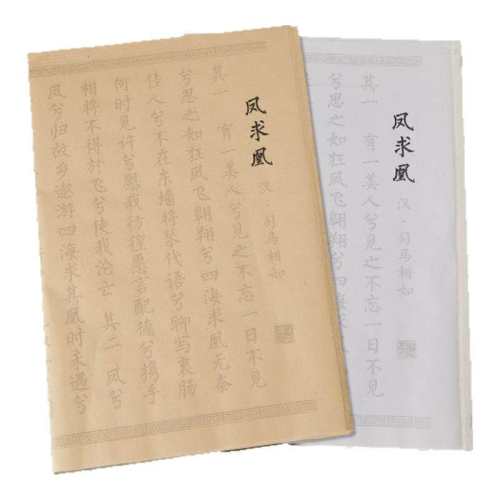 凤求凰
汉·司马相如
其一 有一美人兮见之不忘一日不见
兮思之如狂凤飞翱翔兮四海求凰无奈
佳人兮不在东墙将琴代语兮聊写衷肠
何时见许兮慰我彷徨愿言配德兮携手
相将不得於飞兮使我沦亡 其二 凤兮
凤兮归故乡遨游四海求其凰时未遇兮
凤求凰
汉·司马相如
其一 有一美人兮见之不忘一日不见
兮思之如狂凤飞翱翔兮四海求